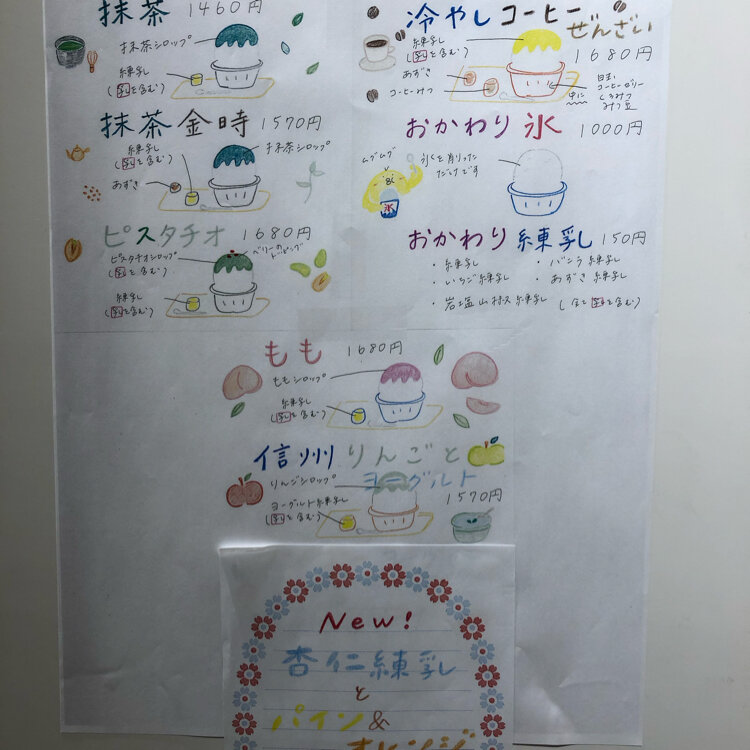 抹茶 1460円
抹茶シロップ
練乳
(乳を含む)
抹茶金時 1570円
練乳
(乳を含む)
抹茶シロップ
あずき
ピスタチオ 1680円
ピスタチオシロップ
(乳を含む)
ベリーの
トッピング
練乳
(乳を含む)
冷やしコーヒー
ぜんざい
1680円
練乳
(乳を含む)
あずき
コーヒーみつ
白玉
コーヒーゼリー
くるみつ
みつ豆
中に
おかわり氷 1000円
ムグムグ
氷を削った
だけです
氷
おかわり練乳 150円
・練乳
・バニラ練乳
・いちご練乳
・あずき練乳
・岩塩山椒練乳
(全て乳を含む)
もも 1680円
ももシロップ
練乳
(乳を含む)
信州りんごと
ヨーグルト
りんごシロップ
1570円
ヨーグルト練乳
(乳を含む)
New!
杏仁練乳
と
パイン&
オレンジ